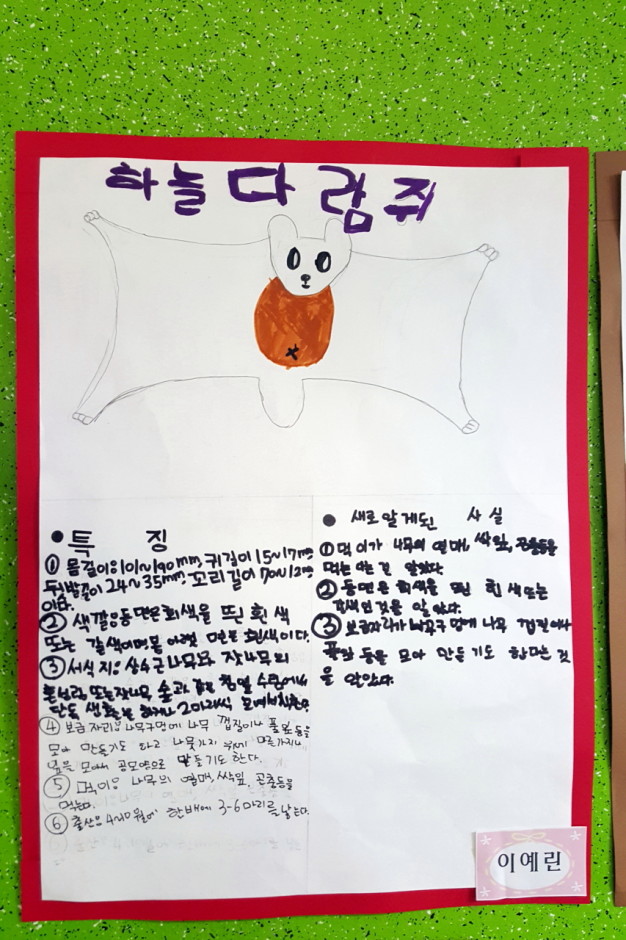 하늘다람쥐
● 특 징
① 몸길이:101~190mm, 귀길이 15~17mm
뒷발길이 24~35mm, 꼬리길이 70~12mm
이다.
② 색깔:등면은 회색을 띤 흰 색
또는 갈색이며 몸 아랫 면은 흰색이다.
③ 서식지: 상수리나무와 잣나무의
혼성림, 또는 잣나무 숲과 같은 침엽 수림에서
단독 생활을 하거나 2마리씩
④ 보금자리:나무구멍에 나무 껍질이나 풀잎 등을
모아 만들기도 하고 나뭇가지 위에 마른가지나
잎을 모아서 공모양으로 만들기도 한다.
⑤ 먹이: 나무의 열매, 싹, 잎, 곤충등을
먹는다.
⑥ 출산: 4~10월에 한배에 3-6마리를 낳는다.
● 새로 알게된 사실
① 먹이가 나무의 열매, 싹, 잎, 곤충등을
먹는 다는 걸 알았다
② 등면은 회색을 띤 흰색또는
갈색인것을 알 았다.
③ 보금자리가 나무구멍에 나무 껍질이나
풀잎 등을 모아 만들기도 한다는 것
을 알았다.
이예린